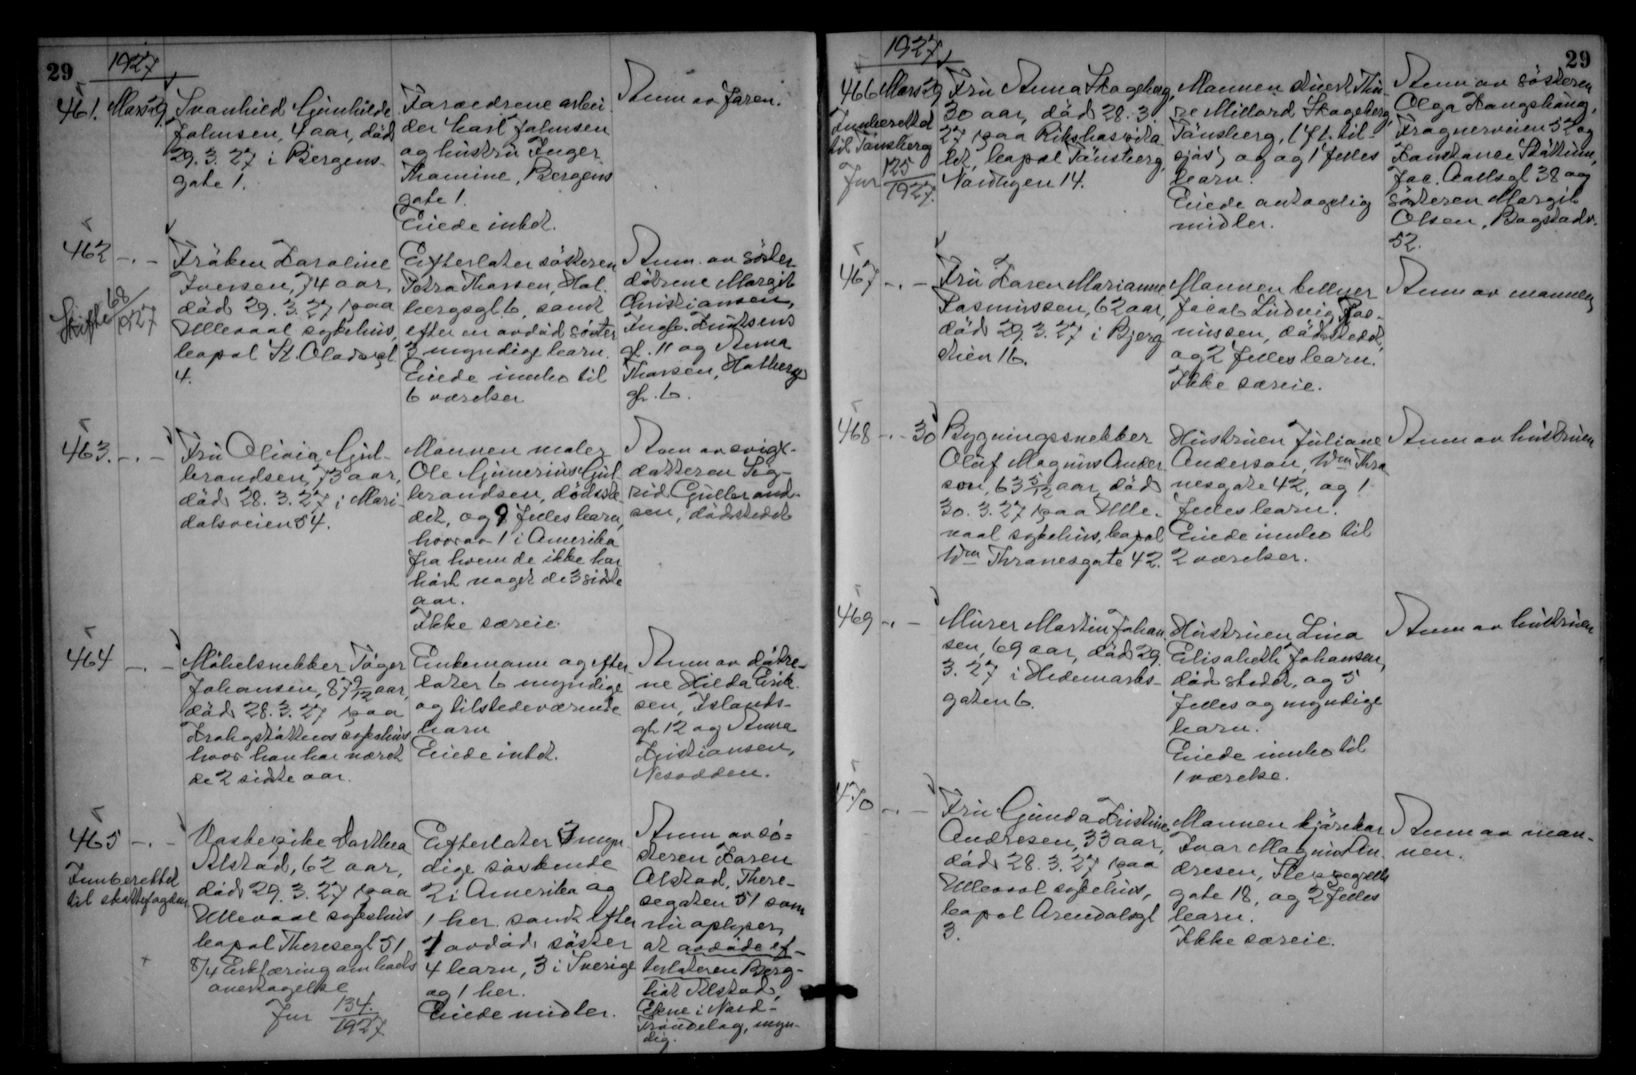 29 1927
461. Mars 29. Svanhild Gunhilde
Johnsen, 4 aar, död
29.3.27 i Bergens-
gate 1.
Foraeldrene arbei
der Karl Johnsen
og hustru Inger
Thomine, Bergens
gate 1.
Eiede intet.
Anm av faren.
462 -.- Fröken Karoline
Iversen, 74 aar,
död 29.3.27 paa
Ullevaal sykehus,
bopæl St. Olavsgt
4.
Skifte 68/1927
Efterlater søsteren
Petra Thorsen, Hol.
bergsgt. 6, samt
efter en avdöd söster
3 myndige barn.
Eiede innbo til
6 værelser
Anm. av söster
døtrene Margit
Christiansen,
Gt. 11 og Anna
Thorsen, Holberg
gt. 6.
463. -.- Fru Olivia Gul-
brandsen, 73 aar,
död 28.3.27 i Mari-
dalsveien 54.
Mannen maler
Ole Gunerius Gul
brandsen, dødsste
det, og 9 felles barn,
hvorav 1 i Amerika
fra hvem de ikke har
hørt noget de 3 siste
aar.
Ikke særeie.
Anm av svige-
datteren Sig-
rid Gulbrand-
sen, dödstedet
464 -.- Møbelsnekker Töger
Johansen, 87 9/12 aar,
död 28.3.27 paa
Krohgstøttens sykehus
hvor han har været
de 2 siste aar.
Enkemann og efter
later 6 myndige
og tilstedeværende
barn
Eiede intet.
Anm av døtre-
ne Hilda Erik
sen, Islands-
gt 12 og Anna
Kristiansen,
Nesodden.
465 -.- Vaskepike Dorthea
Alstad, 62 aar,
död 29.3.27 paa
Ullevaal sykehus
bopæl Theresegt 51
8/4 Erklæring om boets
overtagelse
Jnr 134/1927
Innberettet
til skattefogden
Efterlater 3 myn
dige søskende
2 i Amerika og
1 her. samt efter
1 avdöd søster
4 barn, 3 i Sverige
og 1 her.
Eiede midler.
Anm av sö=
steren Karen
Alstad, There-
segaten 51 som
nu oplyser,
at avdöde ef-
terlateren Berg-
liot Alstad,
Ekne i Nord-
Tröndelag, myn-
dig.
1927 29
466 Mars 29 Fru Anna Skogeberg,
30 aar, död 28.3.
27 paa Rikshospita
let, bopæl Tönsberg,
Nordbyen 14.
Innberettet
til Tönsberg
Jnr 125/1927.
Mannen stuert Thin
Millard Skogeberg,
Tönsberg, (f.t. til
sjøs), og og 1 felles
barn.
Eiede antagelig
midler.
Anm av söstrene
Olga Haugshaug,
Frognerveien 52 og
Konstance
Jac. Aallsgt 38 og
søsteren Margit
Olsen, Bogstadv.
52.
467 -.- Fru Karen Marianne
Rasmussen, 62 aar,
död 29.3.27 i Bjerg
stien 16.
Mannen kellner
Jacob Ludvig Ras-
mussen, dødstedet,
og 2 felles barn.
Ikke særeie.
Anm av mannen
468 -.- 30 Bygningssnekker
Oluf Magnus Ander
son, 63 5/12 aar, död
30.3.27 paa Ulle-
vaal sykehus, bopæl
Wm Thranesgate 42.
Hustruen Juliane
Anderson, Wm Thra
nesgate 42, og 1
felles barn.
Eiede innbo til
2 værelser.
Anm av hustruen
469 -.- Murer Martin Johan
sen, 69 aar, död 29.
3.27 i Hedemarks-
gaten 6.
Hustruen Lina
Elisabeth Johansen,
dødstedet, og 5
felles og myndige
barn.
Eiede innbo til
1 værelse.
Anm av hustruen
470 -.- Fru Gunda Kristine
Andresen, 33 aar,
död 28.3.27 paa
Ullevaal sykehus,
bopæl Arendalsgt
3.
Mannen kjörekar
Ivar Magnus An
dresen,
gate 18, og 2 felles
barn.
Ikke særeie.
Anm av man-
nen.